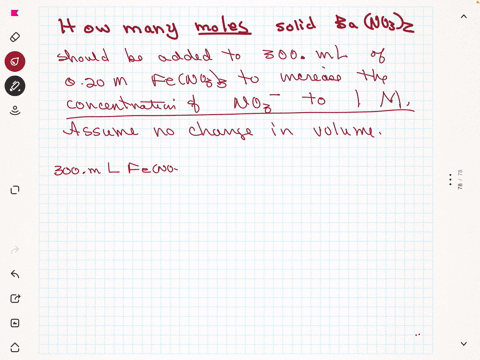 How many moles solid Ba(NO3)2
should be added to 300. mL of
0.20 m Fe(NO3)3 to increase the
concentration of NO3⁻ to 1 M.
Assume no change in volume.
300. m L Fe(NO.
78 / 78